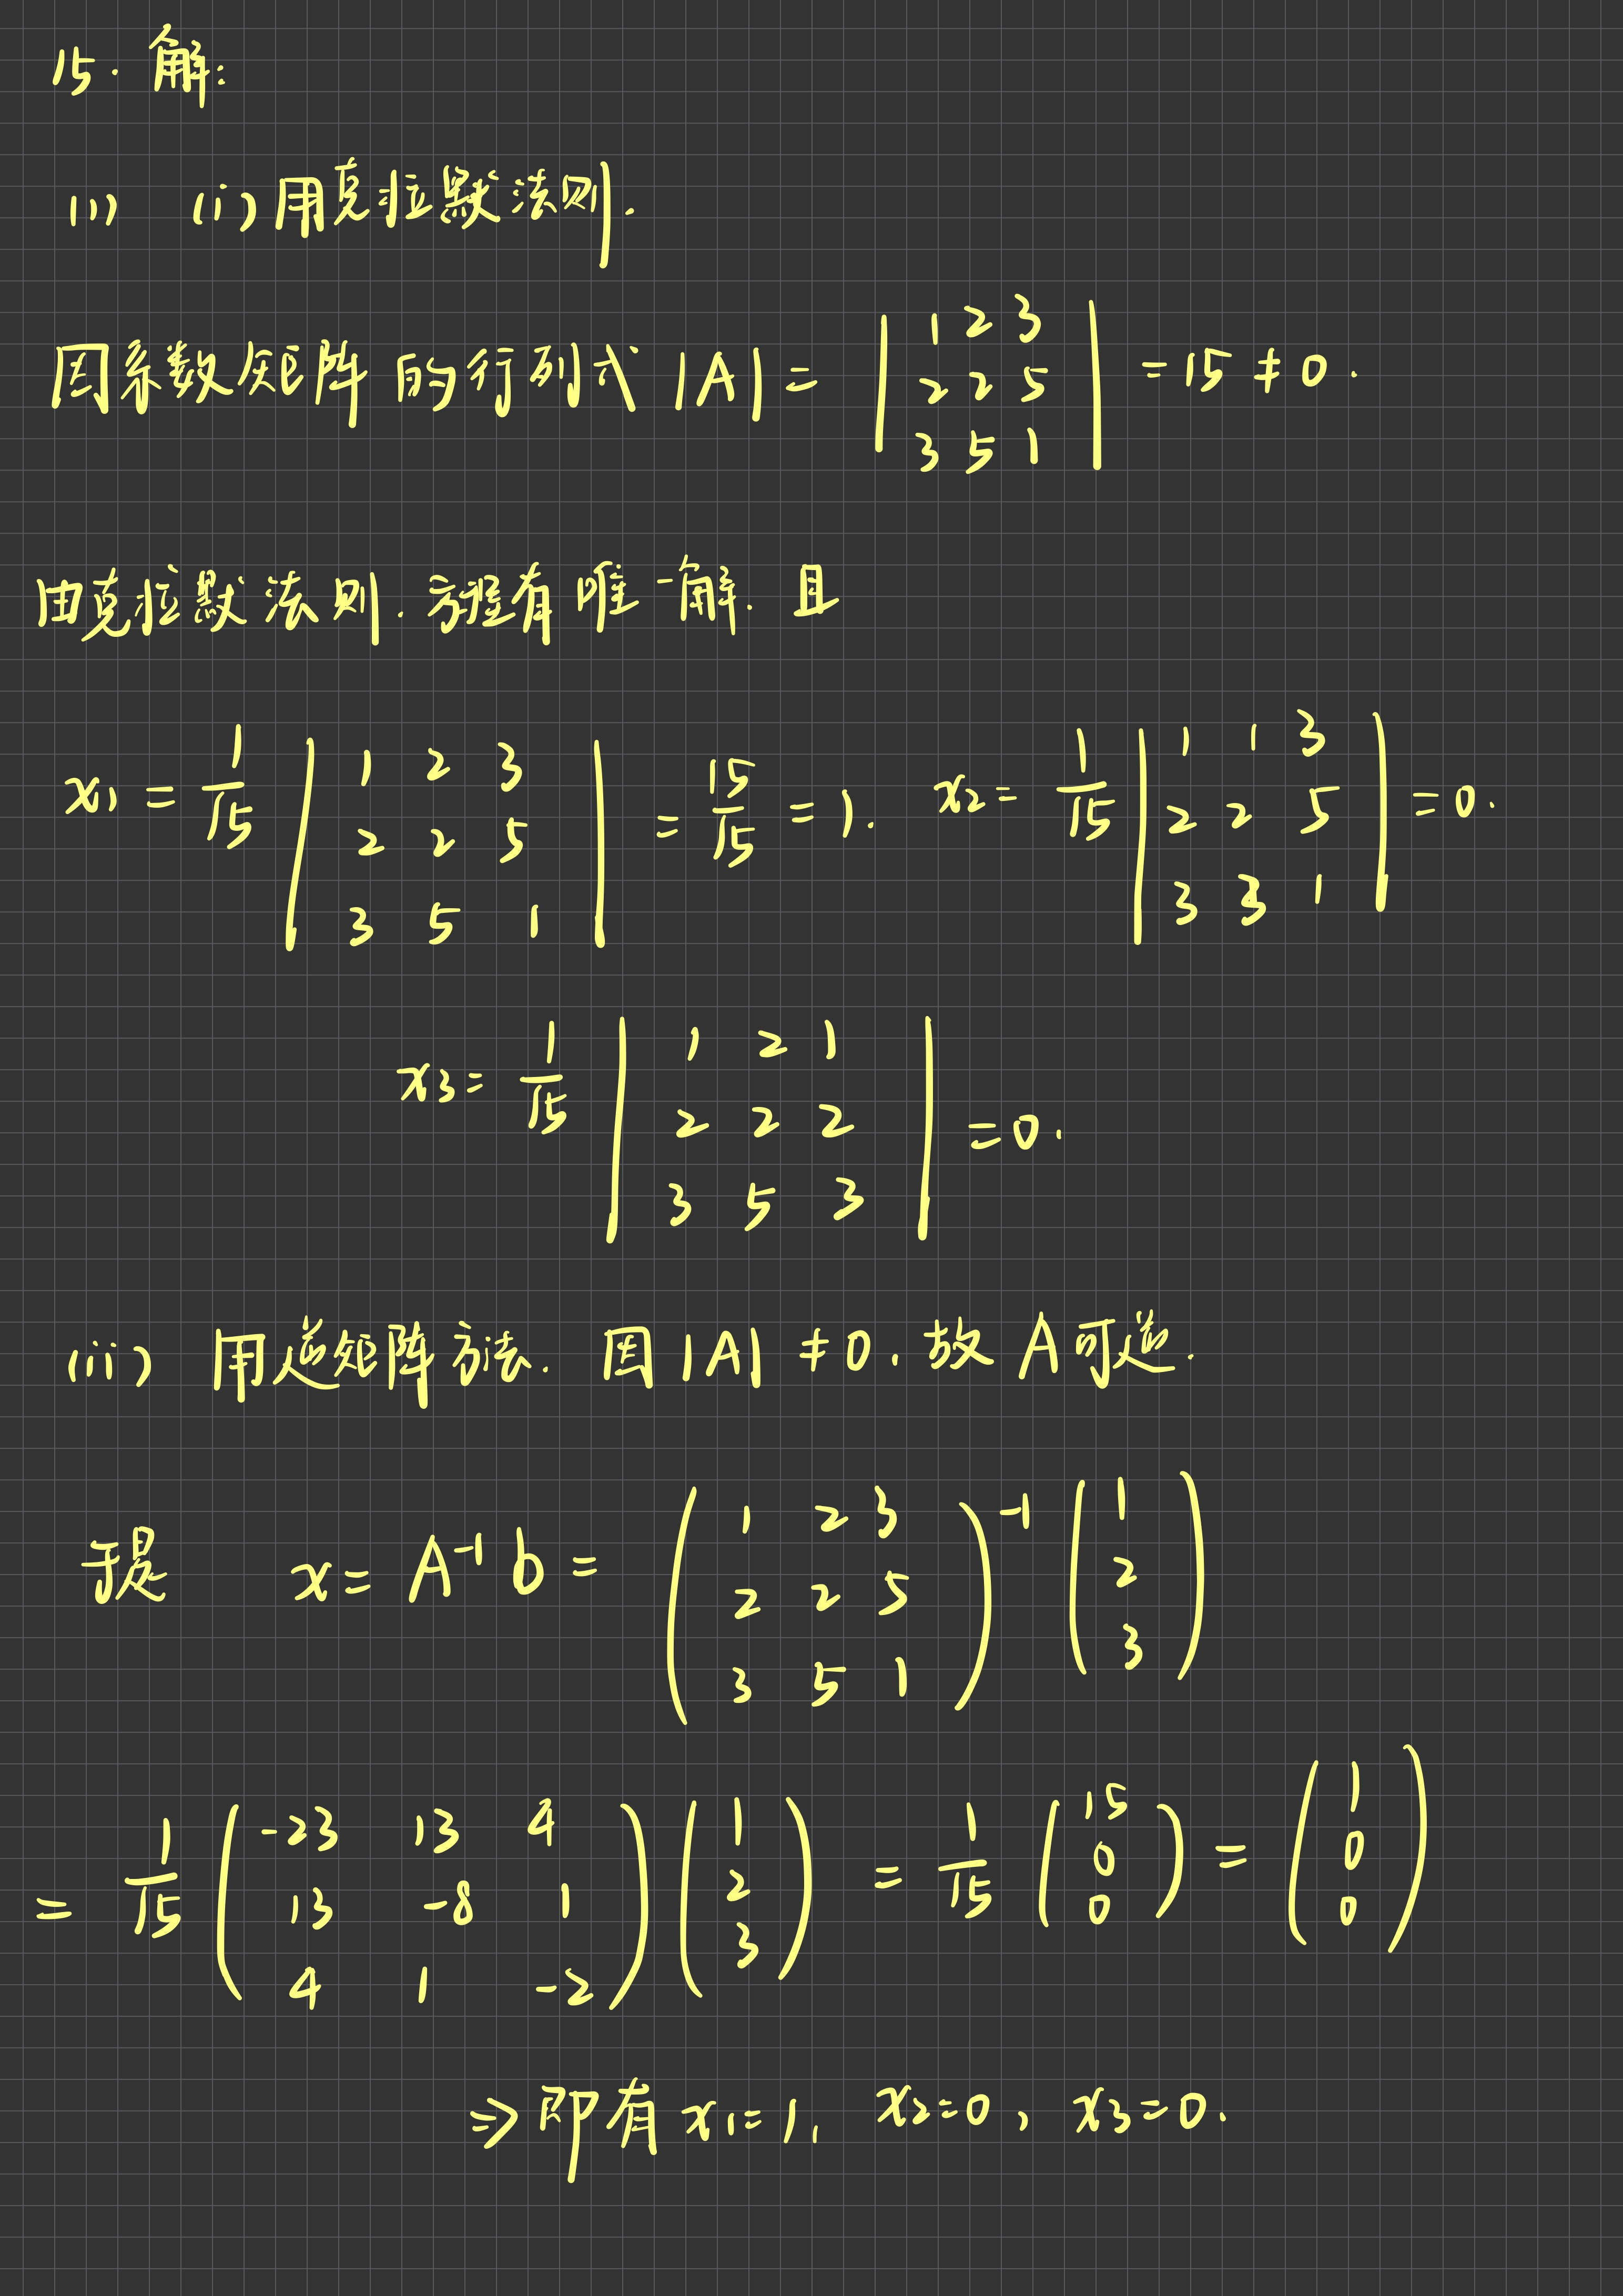 15. 解:
(1) (i) 用克拉默法则.
因系数矩阵的行列式 |A| = | 1 2 3 ; 2 2 5 ; 3 5 1 | = 15 ≠ 0.
由克拉默法则. 方程有唯一解. 且
x₁ = 1/15 | 1 2 3 ; 2 2 5 ; 3 5 1 | = 15/15 = 1. x₂ = 1/15 | 1 1 3 ; 2 2 5 ; 3 3 1 | = 0.
x₃ = 1/15 | 1 2 1 ; 2 2 2 ; 3 5 3 | = 0.
(ii) 用逆矩阵方法. 因 |A| ≠ 0. 故 A 可逆.
于是 x = A⁻¹ b = ( 1 2 3 ; 2 2 5 ; 3 5 1 )⁻¹ ( 1 ; 2 ; 3 )
= 1/15 ( -23 13 4 ; 13 -8 1 ; 4 1 -2 ) ( 1 ; 2 ; 3 ) = 1/15 ( 15 ; 0 ; 0 ) = ( 1 ; 0 ; 0 )
⇒ 即有 x₁ = 1, x₂ = 0, x₃ = 0.